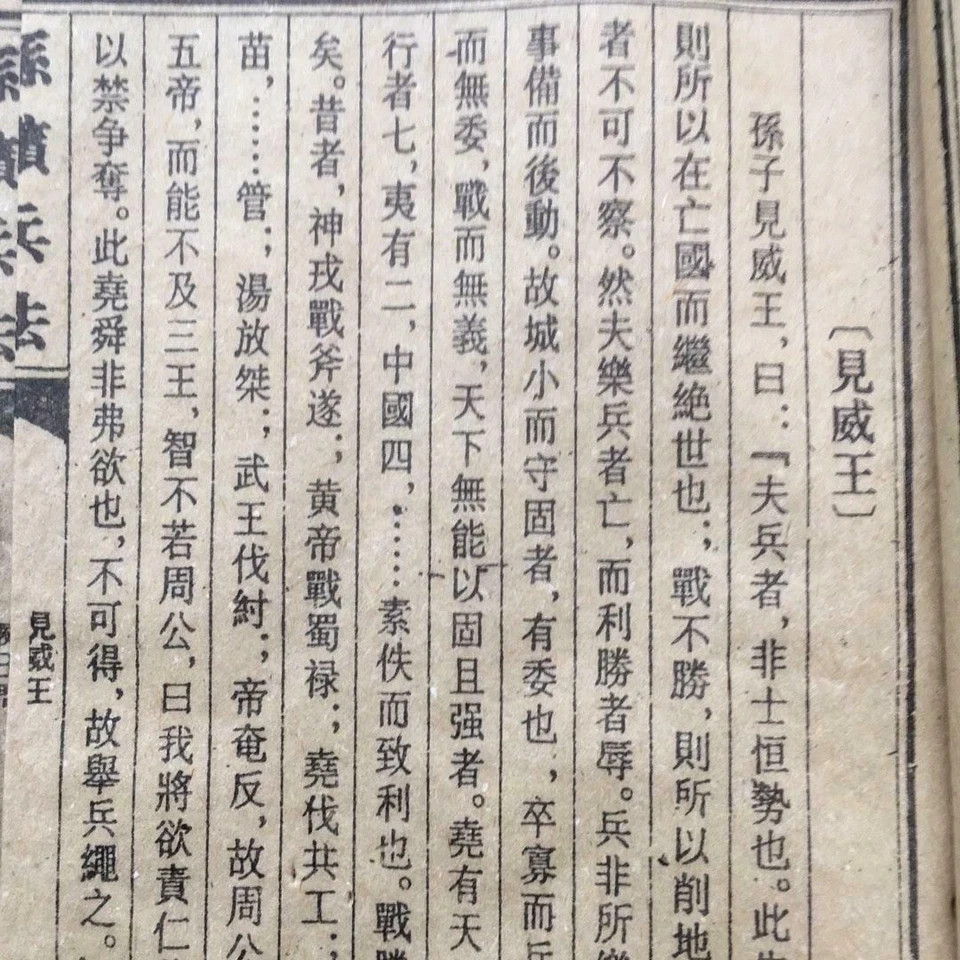 〔見威王〕
孫子見威王，曰：『夫兵者，非士恒勢也。此
則所以在亡國而繼絶世也；戰不勝，則所以削地
者不可不察。然夫樂兵者亡，而利勝者辱。兵非所樂
事備而後動。故城小而守固者，有委也，卒寡而兵
而無委，戰而無義，天下無能以固且强者。堯有天
行者七，夷有二，中國四，……素佚而致利也。戰勝
矣。昔者，神戎戰斧遂；黄帝戰蜀禄；堯伐共工；
苗，……管；湯放桀；武王伐紂；帝奄反，故周公
五帝，而能不及三王，智不若周公，曰我將欲責仁
以禁争奪。此堯舜非弗欲也，不可得，故舉兵繩之。
孫臏兵法
見威王